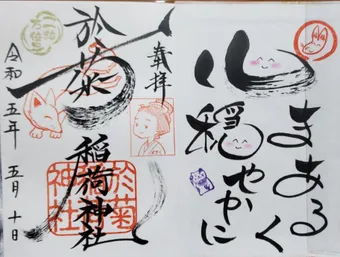 まあるく
心穏やかに
奉拝
於菊稲荷神社
於菊
神社
一粒
万倍日
令和五年五月十日